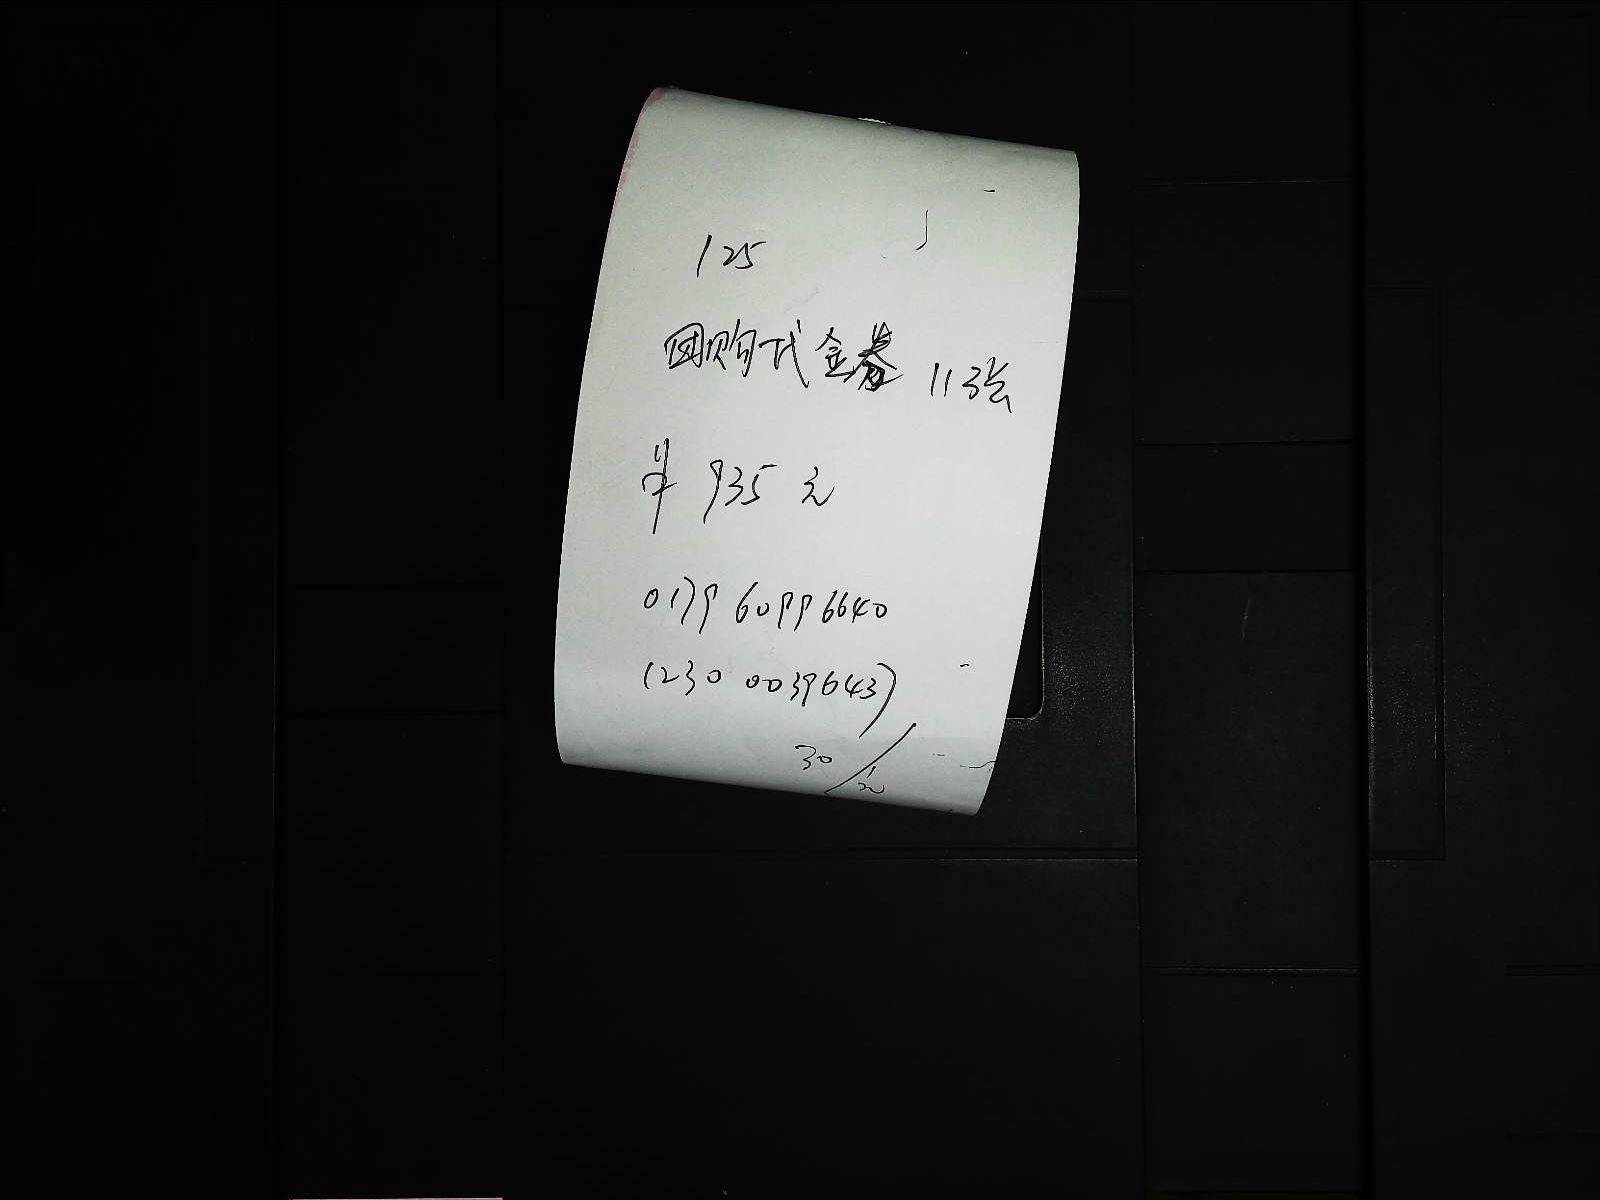 125
团购代金券 11张
单 935元
0179 60996640
(230 0039643)
30/